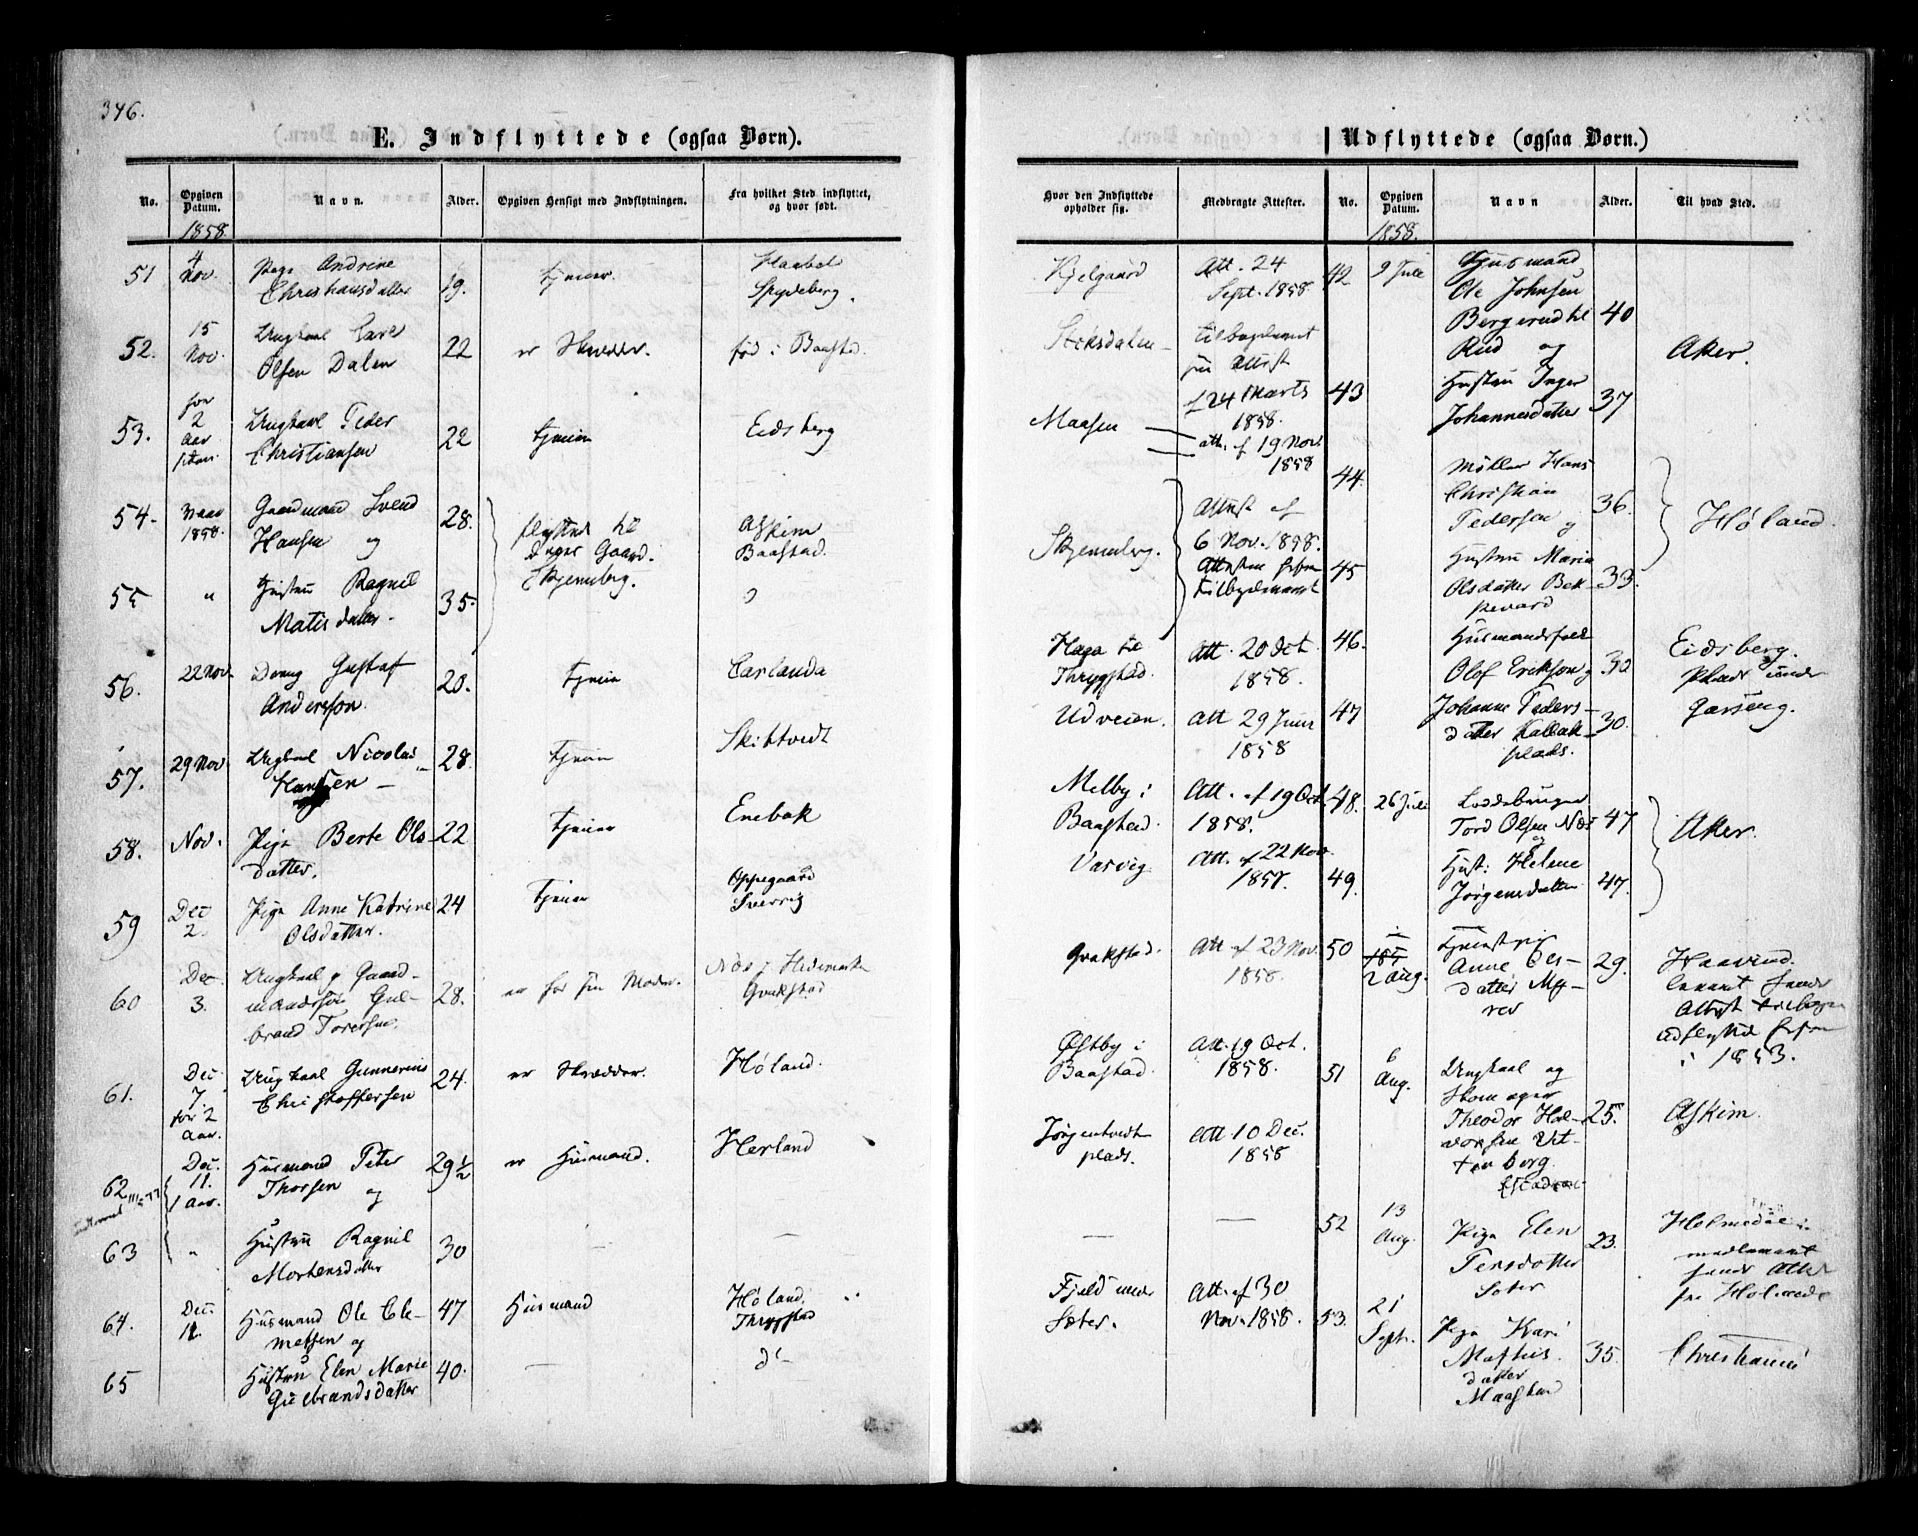 346.
E. Indflyttede (ogsaa Børn).
No. Opgiven Datum. Navn. Alder. Opgiven Hensigt med Indflytningen. Fra hvilket Sted indflyttet, og hvor født.
1858
51 4 Nov. Pige Andrine Christiansdatter 19. tjener. Haabøl Spydeberg.
52. 15 Nov. Ungkarl Carl Olsen Dalen 22 er Skredder. fød i Baastad.
53. for 2 Aar siden Ungkarl Peder Christiansen 22 tjener Eidsberg
54. Vaar 1858. Gaardmand Svend Hansen og 28. flyttede til Gaard. Skjennberg. Askim Baastad.
55 " Hustru Ragnil Matisdatter. 35.
56. 22 Nov. Dreng Gustaf Andersson. 20. tjener Carlanda
57. 29 Nov. Ungkarl Nicolai Hansen 28. tjener Skibtvedt
58. Nov. Pige Berte Olsdatter. 22 tjener Enebak
59 Dec 2. Pige Anne Katrine Olsdatter. 24 tjener Oppegaard Sverrig
60 Dec 3. Ungkarl og Gaardmandssøn Gulbrand Toresen. 28. er hos sin Moder. Næs i Hedemarken Grakstad
61. Dec 7. for 2 Aar. Ungkarl Gunnerius Christoffersen 24. er Skrædder. Høland.
62 Dec. 11. 1 Aar. Husmand Peter Thorsen og 29½ er Husmand. Herland
63 " Hustru Ragnil Mortensdatter 30 —
64. Dec. 11. Husmand Ole Clemetsen og 47 Husmand Høland. Thrygstad
65 Hustru Elen Marie Gulbrandsdatter 40. — do
Udflyttede (ogsaa Børn.)
Hvor den Indflyttede opholder sig. Medbragte Attester. No. Opgiven Datum. Navn Alder. Til hvad Sted.
1858.
Kjelgaard Att. 24 Sept. 1858.
Stiksdalen tilbagekommet Attest f 24 Marts 1858.
Maasen — att. af 19 Nov. 1858
Skjennberg. Attest af 6 Nov. 1858.
Haga Thrygstad. Att. 20 Oct 1858.
Udveien. Att 29 Juni 1858
Melby i Baastad. Att. af 19 Oct 1858.
Varvig Att. af 22 Nov 1858.
Grakstad. Att af 23 Nov. 1858.
Østby i Baastad. Att. 19 Oct. 1858.
Jørgentvedt plads. Att 10 Dec. 1858
— —
Fjeld under Sæter. Att. af 30 Nov. 1858.
42 9 Juli Husmand Ole Johnsen Bergerud til Rud og 40 Aker.
43 Hustru Inger Johannesdatter 37
44. Møller Hans Christian Pedersen og 36. Høland.
45 Hustru Maria Olsdatter 33.
46. Husmandsfolk Olof Erikson og 32 Eidsberg. Plads under
47 Johanne Pedersdatter Kallakplads. 30.
48. 26 Juli Tord Olsen Næs og 47 Aker.
49. Hust: Helene Jørgensdatter 47.
50 2 Aug. Tjenestpige Anne Olsdatter 29. i 1853.
51 6 Aug. Ungkarl og Skomager Theodor Halvorsen Vittenberg. 25. Askim.
52 13 Aug. Pige Elen Pensdatter Soter 23. Holmedal
53. 21 Septr. Pige Kari Mathisdatter 35. Christiania